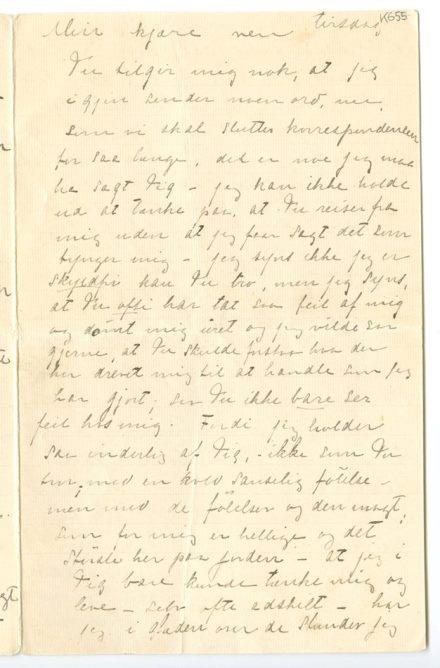 Min kjære ven tirsdag K655
Du tilgir mig nok, at jeg
igjen sender noen ord, nu,
som vi skal slutte korrespondencen
for saa længe, det er noe jeg maa
ha sagt Dig – jeg kan ikke holde
ud at tænke paa, at Du reiser fra
mig uden at jeg faar sagt det som
tynger mig – jeg syns ikke jeg er
skyldfri kan Du tro, men jeg syns,
at Du ofte har tat saa feil af mig
og dømt mig uret og jeg vilde saa
gjerne, at Du skulde forstaa hva der
har drevet mig til at handle som jeg
har gjort, saa Du ikke bare ser
feil hos mig. Fordi jeg holder
saa inderlig af Dig, – ikke som Du
tror, med en kold sanselig følelse –
men med de følelser og den magt,
som for mig er hellige og det
største her paa jorden – at jeg i
Dig bare kunde tænke mig og
leve – selv ofte adskilt – har
jeg i glæden over de stunder jeg